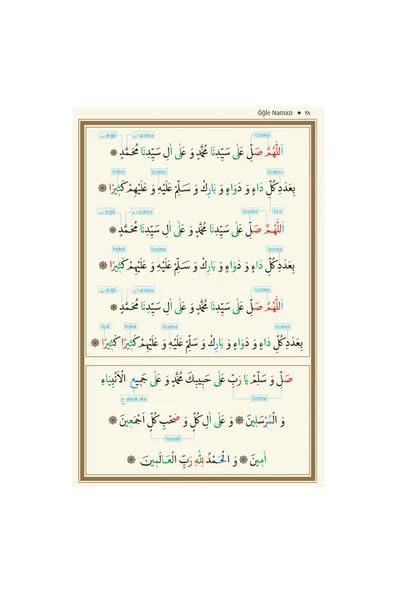 Öğle Namazı ◆ ٢٨
اَللّٰهُمَّ صَلِّ عَلٰى سَيِّدِنَا مُحَمَّدٍ وَ عَلٰى اٰلِ سَيِّدِنَا مُحَمَّدٍ
بِعَدَدِ كُلِّ دَاءٍ وَ دَوَاءٍ وَ بَارِكْ وَ سَلِّمْ عَلَيْهِ وَ عَلَيْهِمْ كَثِيرًا
اَللّٰهُمَّ صَلِّ عَلٰى سَيِّدِنَا مُحَمَّدٍ وَ عَلٰى اٰلِ سَيِّدِنَا مُحَمَّدٍ
بِعَدَدِ كُلِّ دَاءٍ وَ دَوَاءٍ وَ بَارِكْ وَ سَلِّمْ عَلَيْهِ وَ عَلَيْهِمْ كَثِيرًا
اَللّٰهُمَّ صَلِّ عَلٰى سَيِّدِنَا مُحَمَّدٍ وَ عَلٰى اٰلِ سَيِّدِنَا مُحَمَّدٍ
بِعَدَدِ كُلِّ دَاءٍ وَ دَوَاءٍ وَ بَارِكْ وَ سَلِّمْ عَلَيْهِ وَ عَلَيْهِمْ كَثِيرًا كَثِيرًا
صَلِّ وَ سَلِّمْ يَا رَبِّ عَلٰى حَبِيبِكَ مُحَمَّدٍ وَ عَلٰى جَمِيعِ الْاَنْبِيَاءِ
وَ الْمُرْسَلِينَ وَ عَلٰى اٰلِ كُلٍّ وَ صَحْبِ كُلٍّ اَجْمَعِينَ
اٰمِينَ وَ الْحَمْدُ لِلّٰهِ رَبِّ الْعَالَمِينَ